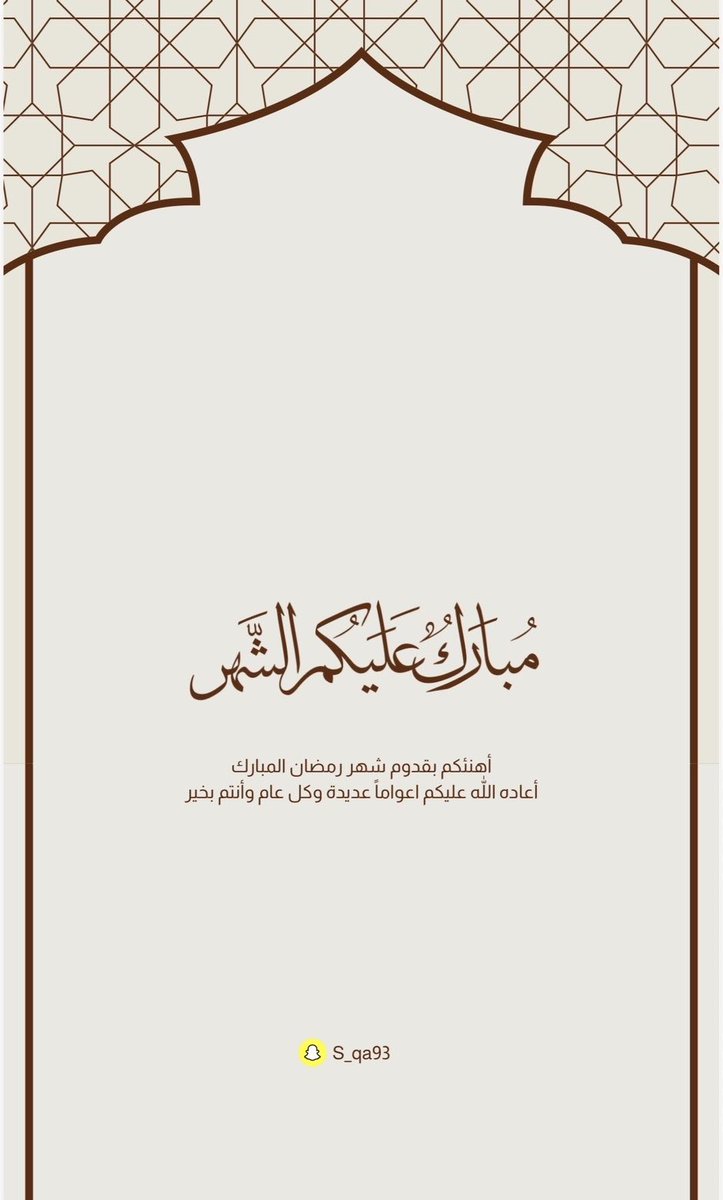 مُبارَكٌ عَلَيكُم الشَّهر
أهنئكم بقدوم شهر رمضان المبارك
أعاده الله عليكم اعواماً عديدة وكل عام وأنتم بخير
S_qa93